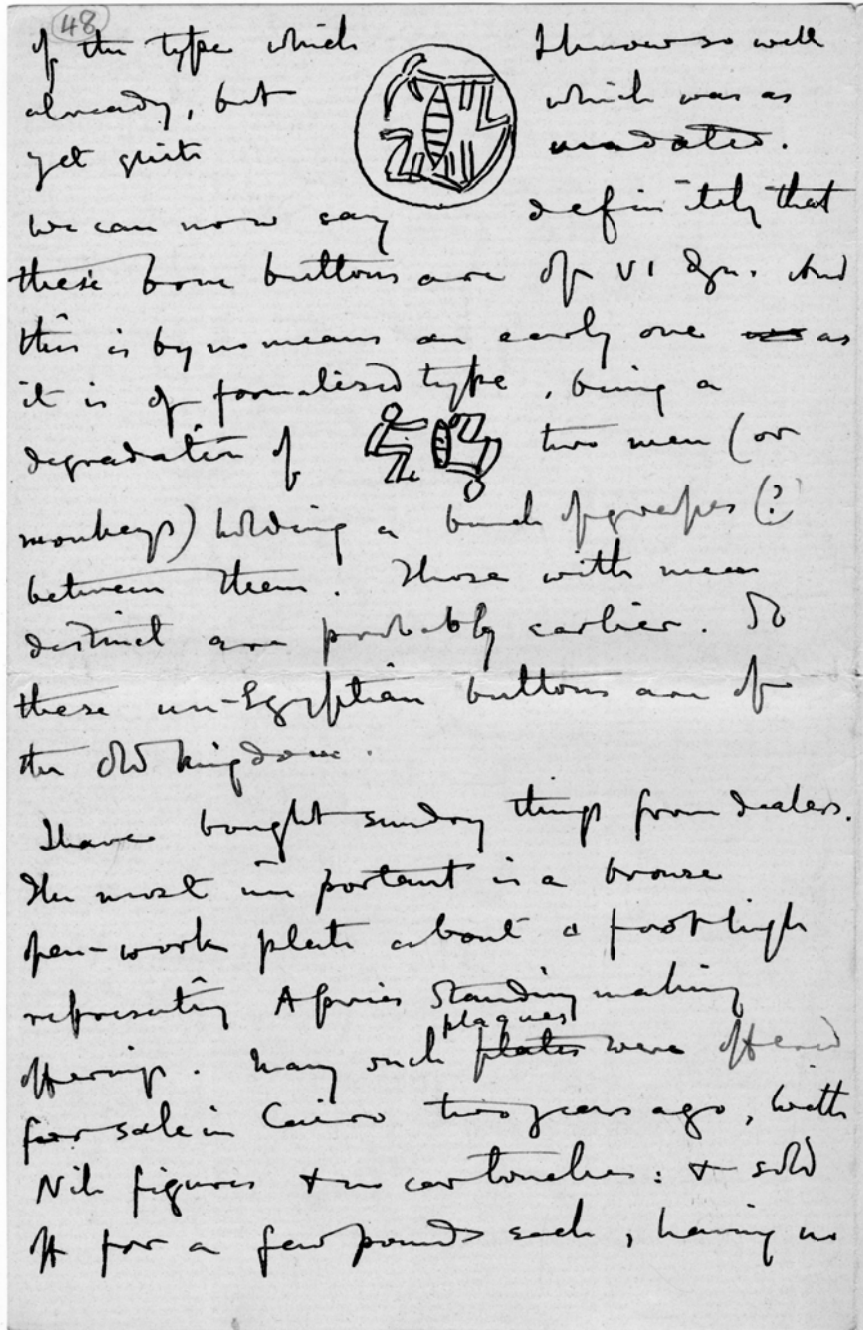 48
of the type which I know so well
already, but which was as
yet quite undated.
We can now say definitely that
these bone buttons are of VI Dyn. And
this is by no means an early one as
it is of formalised type, being a
degradation of two men (or
monkeys) holding a bunch of grapes (?)
between them. Those with men
distinct are probably earlier. So
these un-Egyptian buttons are of
the Old Kingdom.
I have bought sundry things from dealers.
The most important is a bronze
open-work plate about a foot high
representing Apries standing making
offerings. Many such plaques were offered
for sale in Cairo two years ago, with
Nile figures & no cartouches: & sold
off for a few pounds each, having no